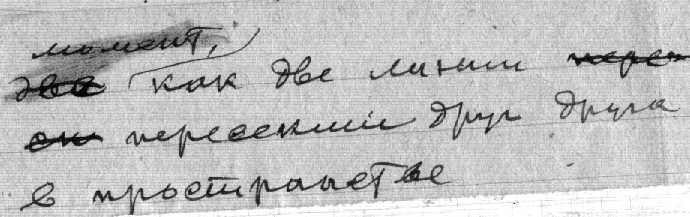 момент,
два как две линии пере-
он пересекли друг друга
в пространстве